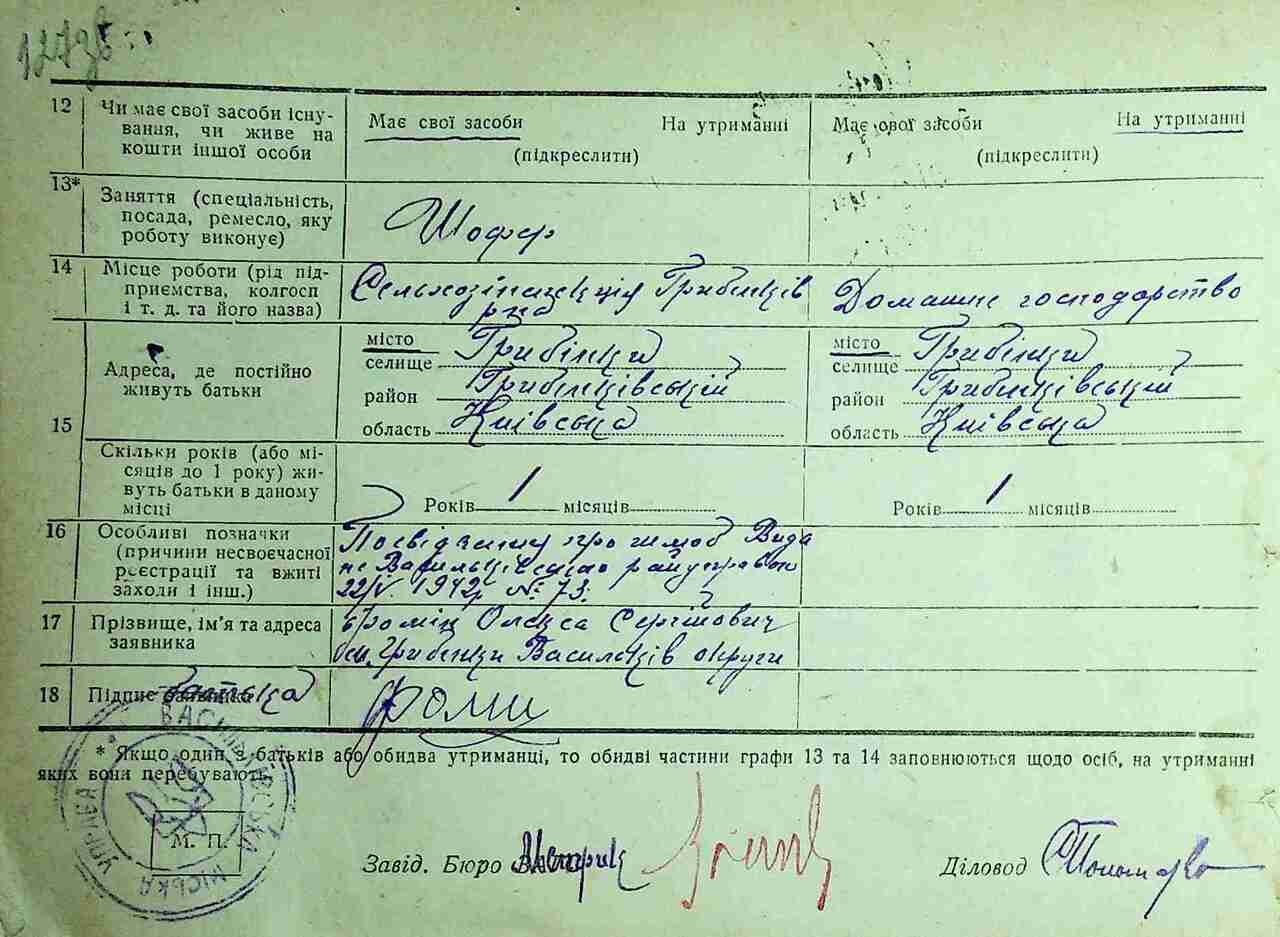 12
Чи має свої засоби існу-
вання, чи живе на
кошти іншої особи
Має свої засоби На утриманні
(підкреслити)
Має свої засоби На утриманні
(підкреслити)
13*
Заняття (спеціальність,
посада, ремесло, яку
роботу виконує)
Шофер
14
Місце роботи (рід під-
приємства, колгосп
і т. д. та його назва)
Грибінків
Домашнє господарство
15
Адреса, де постійно
живуть батьки
місто
селище Грибінки
район Грибінківський
область Київська
місто
селище Грибінки
район Грибінківський
область Київська
Скільки років (або мі-
сяців до 1 року) жи-
вуть батьки в даному
місці
Років 1 місяців
Років 1 місяців
16
Особливі позначки
(причини несвоєчасної
реєстрації та вжиті
заходи і інш.)
Посвідчення про шлюб Вида
не Васильківською райуправою
22/V. 1942р № 73.
17
Прізвище, ім'я та адреса
заявника
Олекса Сергійович
Грибенки Васильків округи
18
Підпис заявника батька
Фомин
* Якщо один з батьків або обидва утриманці, то обидві частини графи 13 та 14 заповнюються щодо осіб, на утриманні
яких вони перебувають.
ВАСИЛЬКІВСЬКА МІСЬКА УПРАВА
М. П.
Завід. Бюро Метрик
Діловод